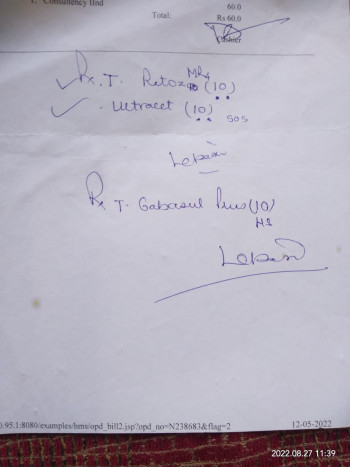 1. Consultancy Ind
60.0
Total: Rs 60.0
Cashier
Rx. T. (10)
. Ultracet (10)
SOS
Rx T. Gabasul Plus (10)
HS
0.95.1:8080/examples/hms/opd_bill2.jsp?opd_no=N238683&flag=2 12-05-2022
2022.08.27 11:39